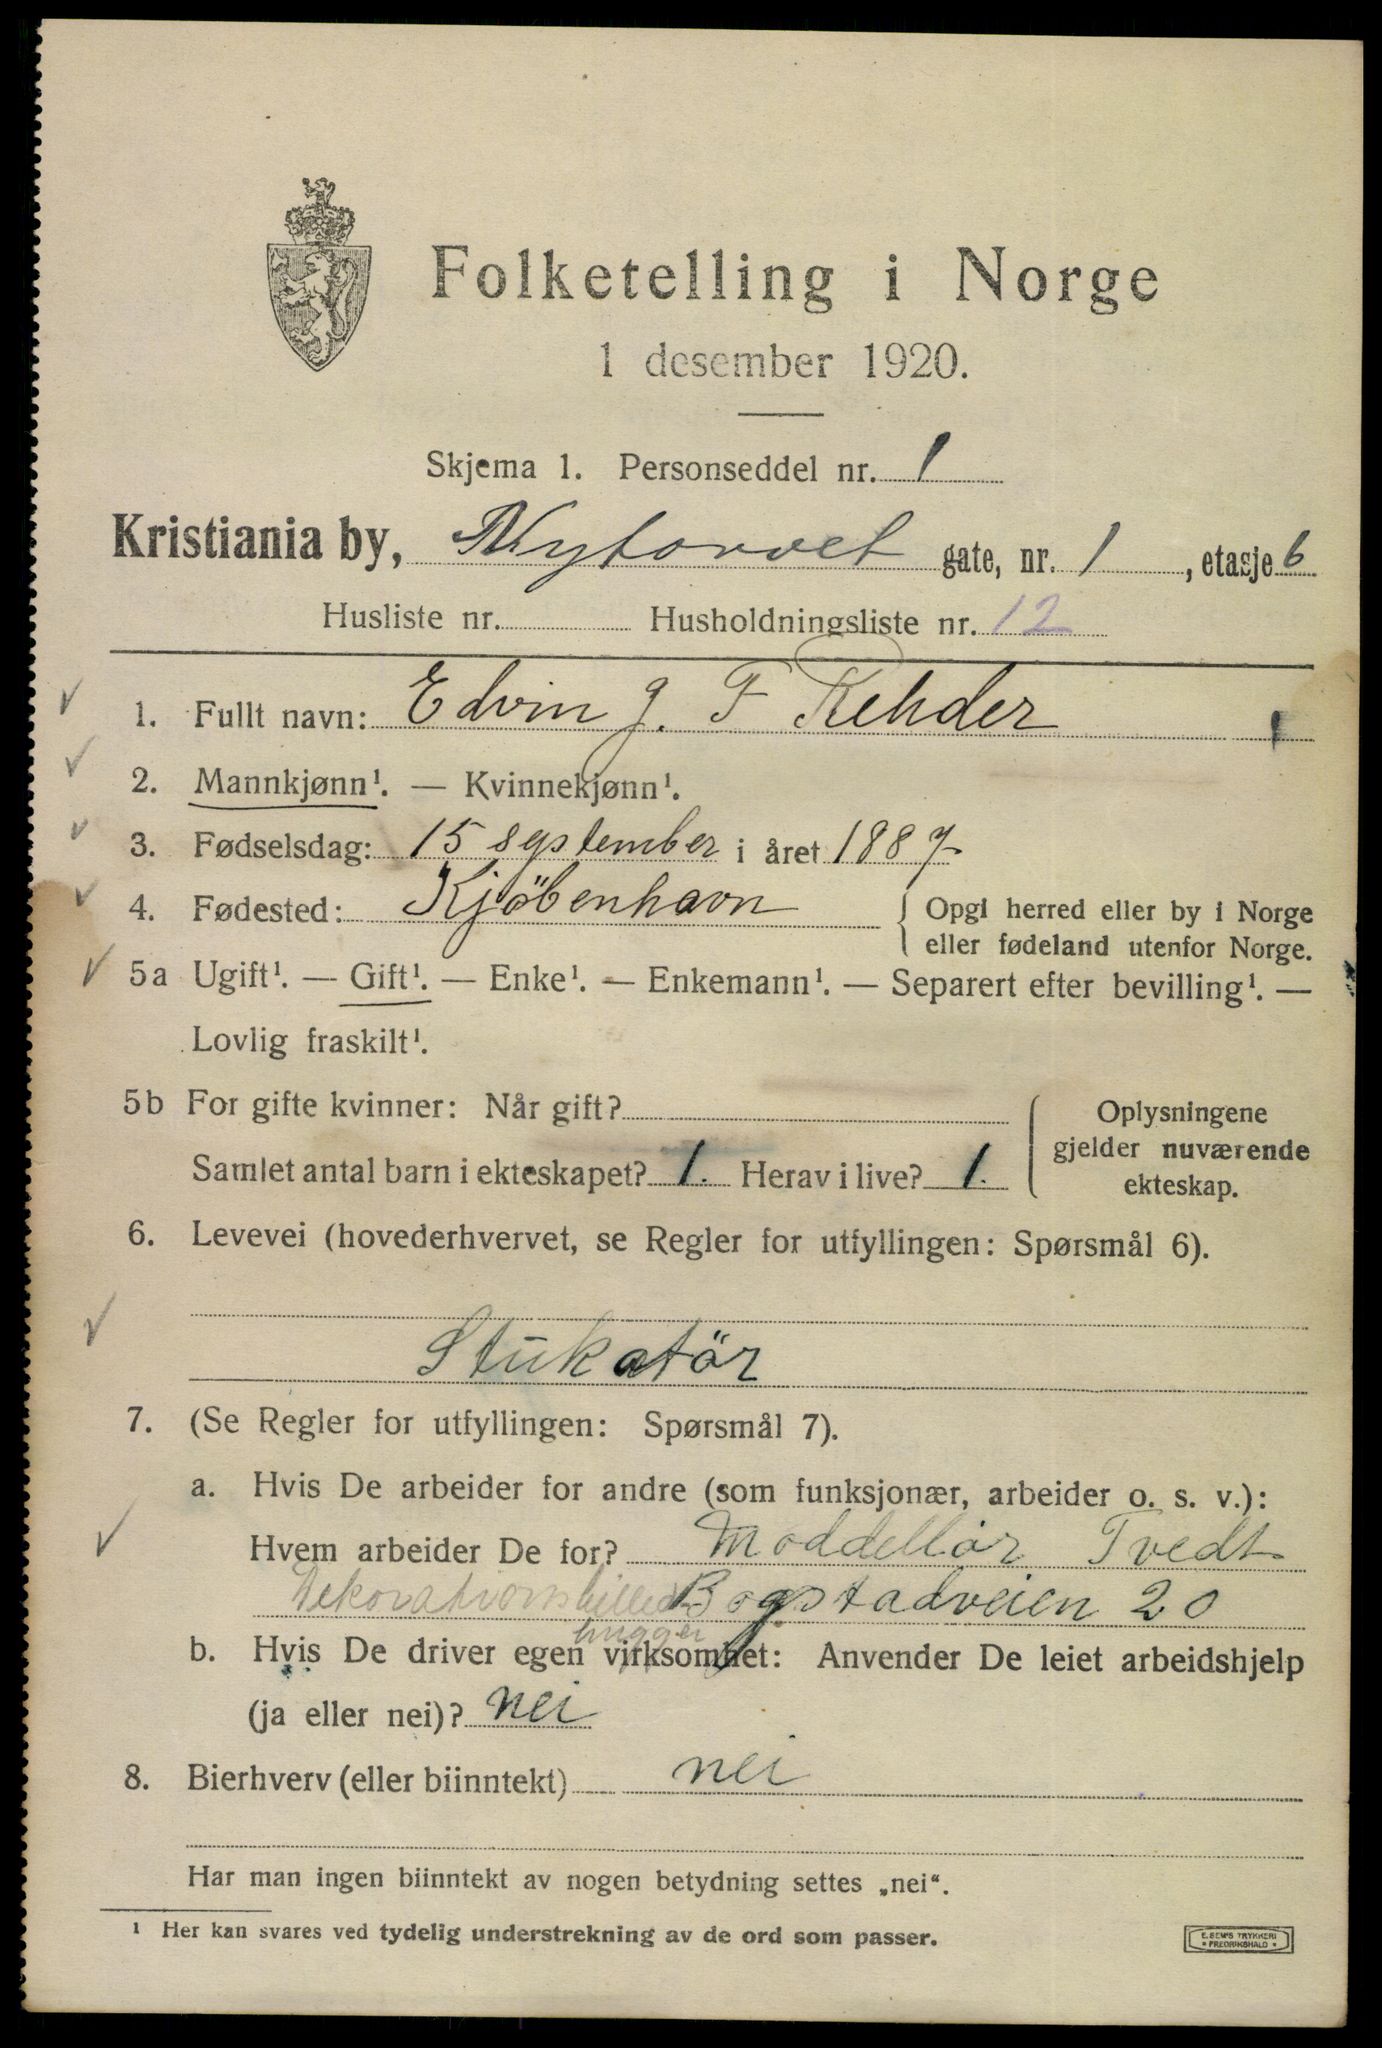 Folketelling i Norge
1 desember 1920.
Skjema 1. Personseddel nr. 1
Kristiania by, Nytorvet gate, nr. 1, etasje 6
Husliste nr. Husholdningsliste nr. 12
1. Fullt navn: Edvin J. F Rehder
2. Mannkjønn¹. — Kvinnekjønn¹.
3. Fødselsdag: 15 september i året 1887
4. Fødested: Kjöbenhavn { Opgi herred eller by i Norge
eller fødeland utenfor Norge.
5a Ugift¹. — Gift¹. — Enke¹. — Enkemann¹. — Separert efter bevilling¹. —
Lovlig fraskilt¹.
5b For gifte kvinner: Når gift?
Samlet antal barn i ekteskapet? 1. Herav i live? 1.
Oplysningene
gjelder nuværende
ekteskap.
6. Levevei (hovederhvervet, se Regler for utfyllingen: Spørsmål 6).
Stukatör
7. (Se Regler for utfyllingen: Spørsmål 7).
a. Hvis De arbeider for andre (som funksjonær, arbeider o. s. v.):
Hvem arbeider De for? Moddellör Tvedt
Dekorationsbilled Bogstadveien 20
hugger
b. Hvis De driver egen virksomhet: Anvender De leiet arbeidshjelp
(ja eller nei)? nei
8. Bierhverv (eller biinntekt) nei
Har man ingen biinntekt av nogen betydning settes „nei“.
¹ Her kan svares ved tydelig understrekning av de ord som passer.
E. SEM'S TRYKKERI
• FREDRIKSHALD •